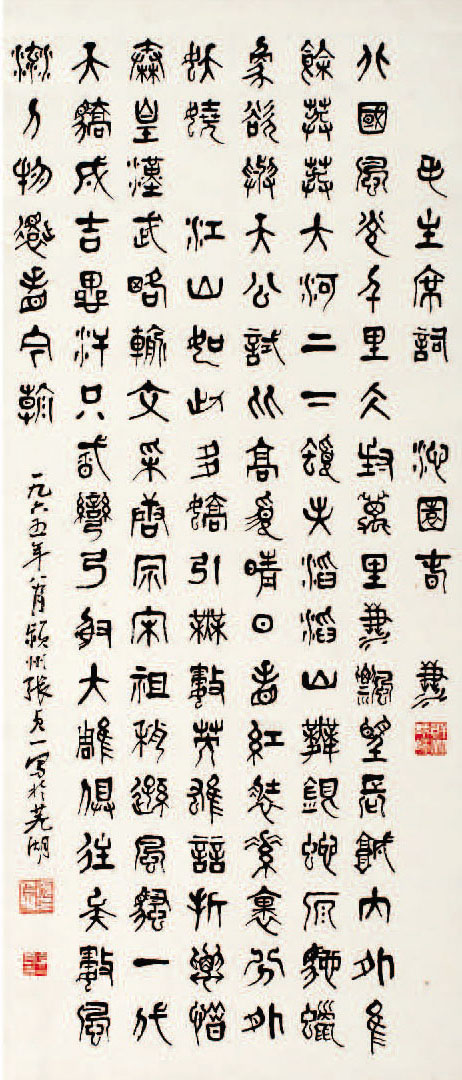 毛主席詞 沁園春 雪
北國風光千里冰封萬里雪飄望長城內外惟
餘莽莽大河上下頓失滔滔山舞銀蛇原馳蠟
象欲與天公試比高須晴日看紅裝素裹分外
妖嬈 江山如此多嬌引無數英雄競折腰惜
秦皇漢武略輸文采唐宗宋祖稍遜風騷一代
天驕成吉思汗只識彎弓射大雕俱往矣數風
流人物還看今朝
一九六五年八月潁州張貞一寫於蕪湖